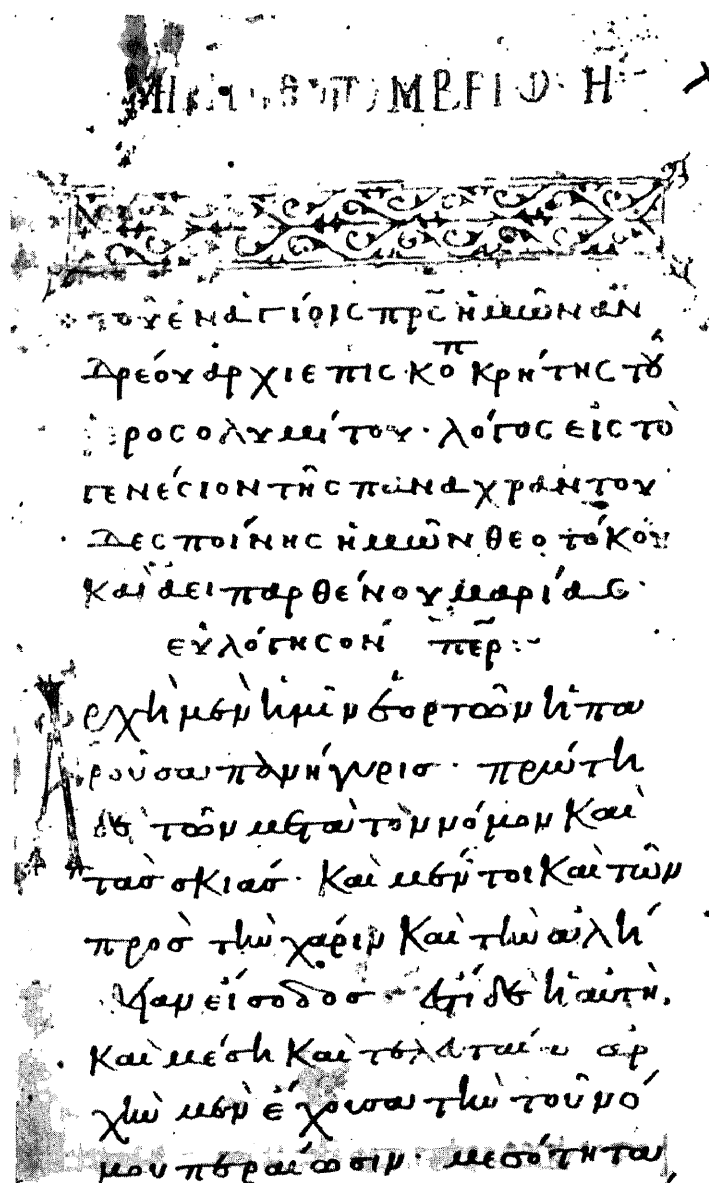 ΜΗΝΙ ΣΕΠΤΕΜΒΡΙΩ Η
τοῦ ἐν ἁγίοις πρς ἡμῶν ἀν
δρέου ἀρχιεπισκοπ κρήτης τοῦ
ἱεροσολυμίτου· λόγος εἰς τὸ
γενέσιον τῆς παναχράντου
δεσποίνης ἡμῶν θεοτόκου
καὶ ἀειπαρθένου μαρίας·
εὐλόγησον περ:
Ἀρχὴ μὲν ἡμῖν ἑορτῶν ἡ πα
ροῦσα πανήγυρισ· πρώτη
δὲ τῶν μετὰ τὸν νόμον καὶ
τὰσ σκιάσ· καὶ μέντοι καὶ τῶν
πρὸσ τὴν χάριν καὶ τὴν ἀλή
θειαν εἴσοδοσ· ἔστι δὲ ἡ αὐτὴ,
καὶ μέση καὶ τελευταία ἀρ
χὴν μὲν ἔχουσα τὴν τοῦ νό
μου περαίωσιν· μεσότητα